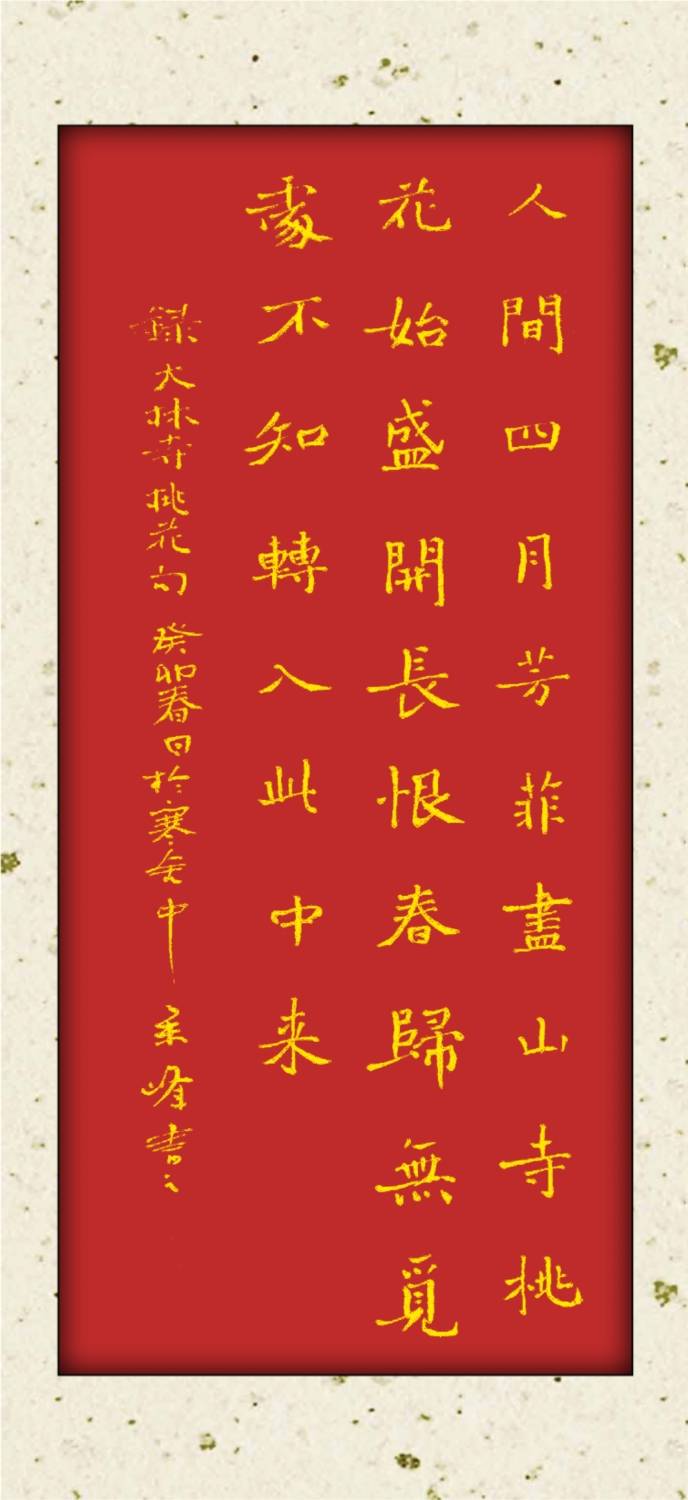 人間四月芳菲盡山寺桃
花始盛開長恨春歸無覓
處不知轉入此中来
録大林寺桃花句癸卯春日於寒舍中 峰書之